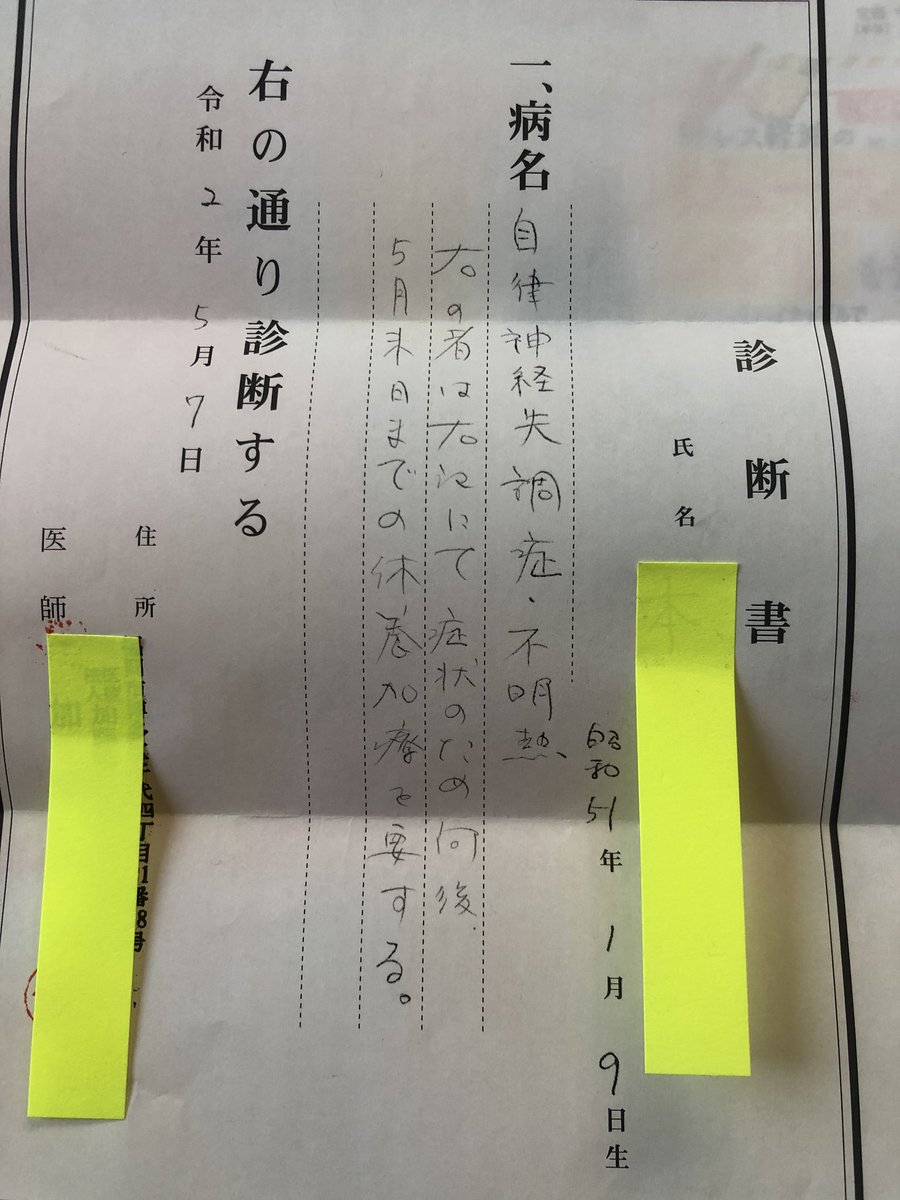 診断書
氏名
昭和51年1月9日生
一、病名 自律神経失調症・不明熱
右の者は右記にて症状のため向後
5月末日までの休養加療を要する。
右の通り診断する
令和2年5月7日
住所
四丁目
医師